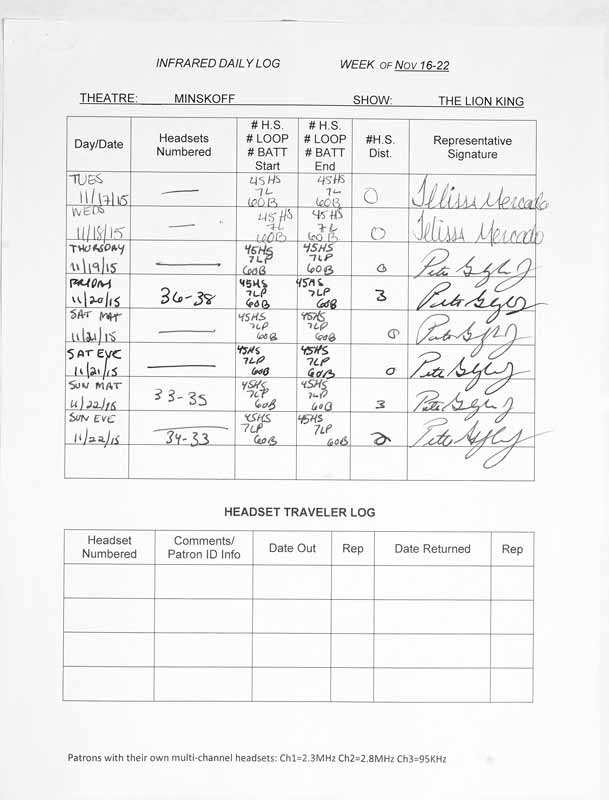 INFRARED DAILY LOG WEEK OF NOV 16-22
THEATRE: MINSKOFF SHOW: THE LION KING
Day/Date
Headsets
Numbered
# H.S.
# LOOP
# BATT
Start
# H.S.
# LOOP
# BATT
End
#H.S.
Dist.
Representative
Signature
TUES
11/17/15
—
45HS
7L
60B
45HS
7L
60B
0
Ilissa Mercado
WEDS
11/18/15
—
45HS
7L
60B
45HS
7L
60B
0
Ilissa Mercado
THURSDAY
11/19/15
—
45HS
7LP
60B
45HS
7LP
60B
0
Pete
FRIDAY
11/20/15
36-38
45HS
7LP
60B
45HS
7LP
60B
3
Pete
SAT MAT
11/21/15
—
45HS
7LP
60B
45HS
7LP
60B
0
Pete
SAT EVE
11/21/15
—
45HS
7LP
60B
45HS
7LP
60B
0
Pete
SUN MAT
11/22/15
33-35
45HS
7LP
60B
45HS
7LP
60B
3
Pete
SUN EVE
11/22/15
34-33
45HS
7LP
60B
45HS
7LP
60B
2
Pete
HEADSET TRAVELER LOG
Headset
Numbered
Comments/
Patron ID Info
Date Out
Rep
Date Returned
Rep
Patrons with their own multi-channel headsets: Ch1=2.3MHz Ch2=2.8MHz Ch3=95KHz